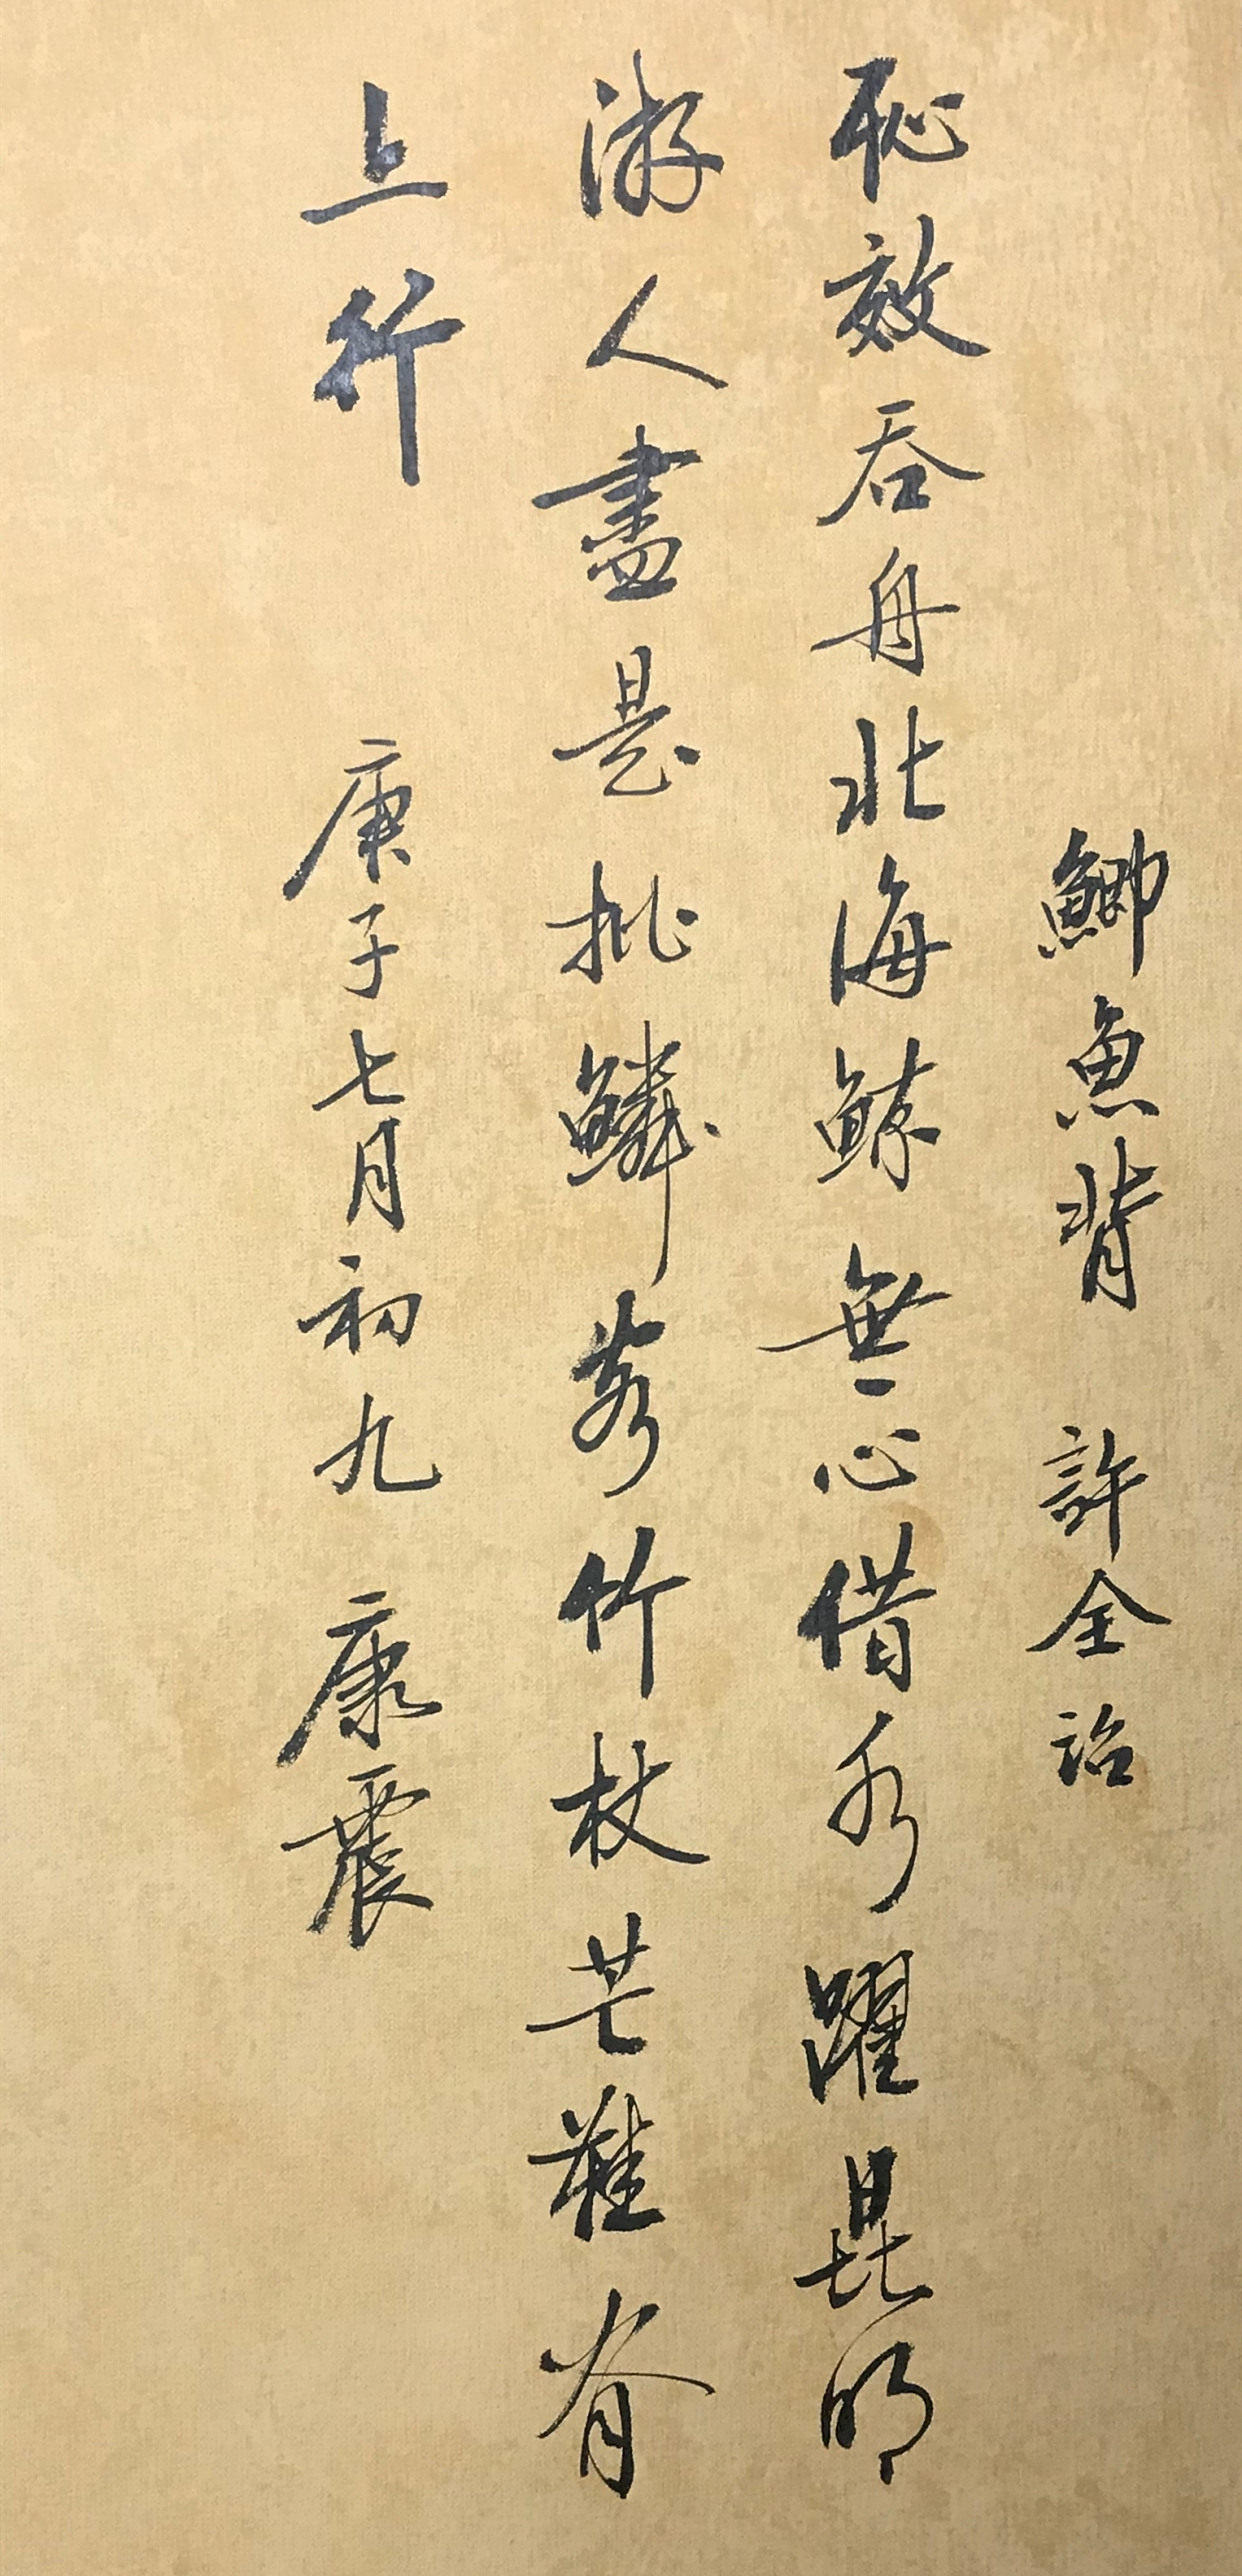 鯽魚背 許全詒
恥效吞舟北海鯨無心借水躍昆明
游人盡是批鱗客竹杖芒鞋脊
上行 庚子七月初九 康震